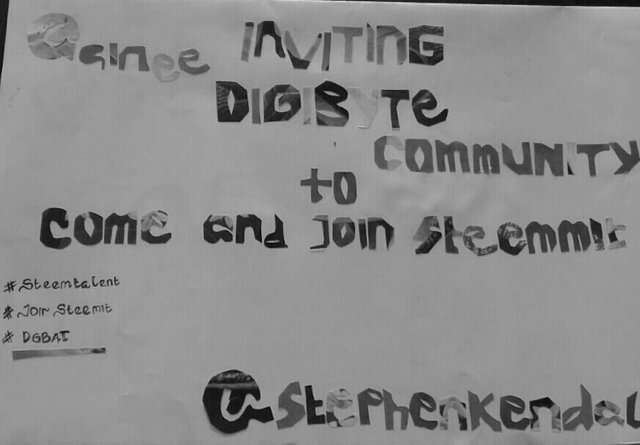 @ainee INVITING
DIGIBYTE
COMMUNITY
to
COME and JOIN Steemmit
#Steemtalent
#Join Steemit
# DGBAI
@Stephenkendal